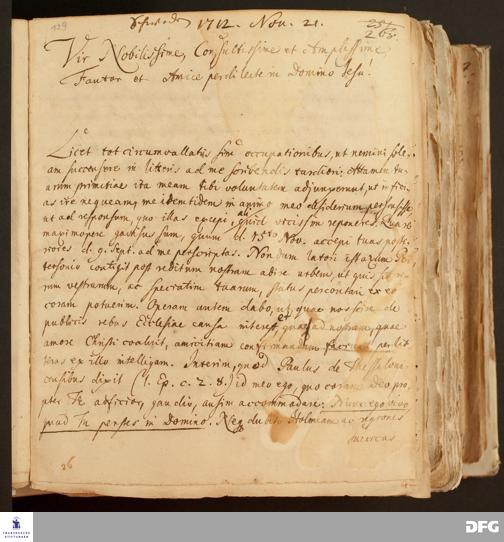 129
1712. Nov. 21.
251
268.
Vir Nobilissime, Consultissime et Amplissime
Fautor et Amice perdilecte in Domino Jesu!
Licet tot circumvallatus sim occupationibus, ut nemini sole-
am succensere in litteris ad me scribendis tardiori; Attamen tu-
arum primitiae ita meam tibi voluntatem adjunxerunt, ut inficias
ire nequeam, me identidem in animo meo desiderium persensisse,
ut ad responsum, quo illas excepi, reponeres. Quare
maximopere gavisus sum, quum d. 15 Nov. accepi tuas poste-
riores d. 9. Sept. ad me perscriptas. Nondum latori
contigit post reditum nostram adire urbem, ut quis sit re-
rum vestrarum, ac speciatim tuarum, status percontari ex eo
coram potuerim. Operam autem dabo, ut quae nosse de
publicis rebus Ecclesiae causa interest, et quae ad nostram, quae
amore Christi coaluit, amicitiam confirmandam per lit
teras ex illo intelligam. Interim, quod Paulus de Thessaloni-
censibus dixit (1. Ep. c. 3. 8.) id meo ego, quo coram Deo pro-
pter Te adficior, gaudio, ausim accommodare: Nunc ego vivo
quod Tu perstes in Domino. Neque dubito Holmiam ac regiones
26
TRANCKESCHE STIFTUNGEN
DFG